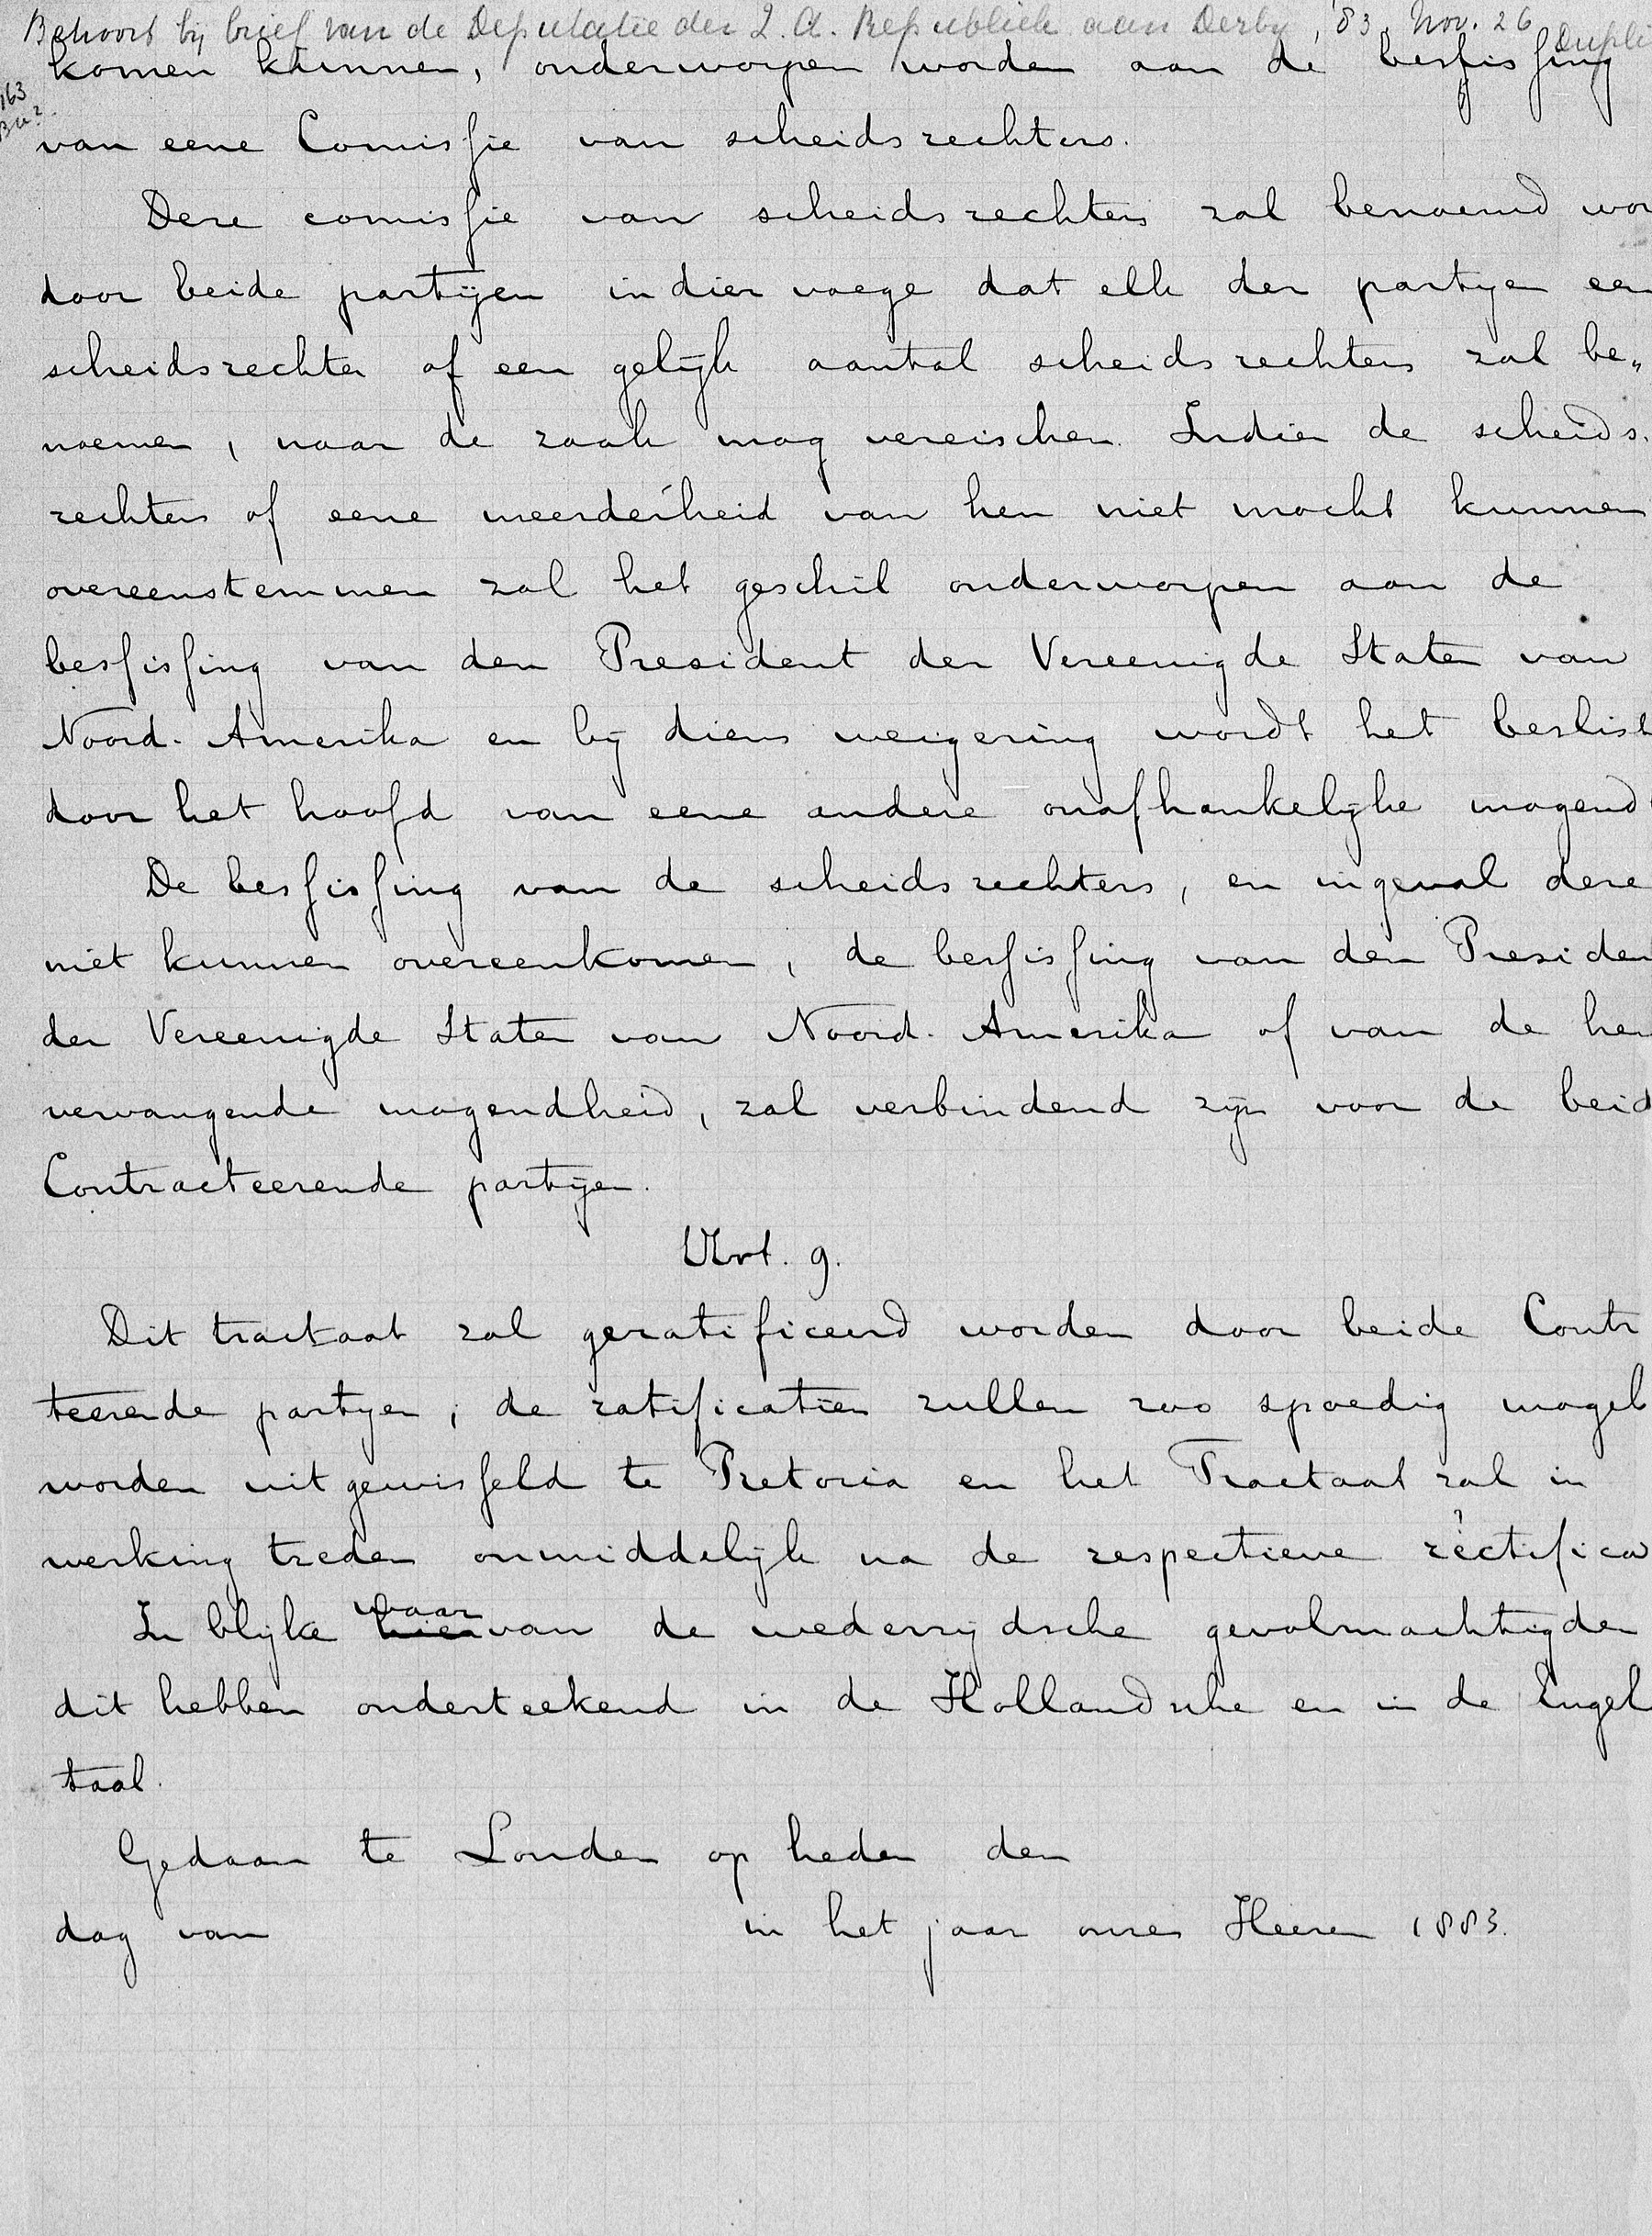 Behoort bij brief van de Deputatie der Z. A. Republiek aan Derby, '83, Nov. 26 Dupli
komen kunnen, onderworpen worden aan de beslissing
163
van eene Comissie van scheidsrechters.
Deze comissie van scheidsrechters zal benoemd wor
door beide partijen in dier voege dat elk der partyen een
scheidsrechter of een gelijk aantal scheidsrechters zal be„
noemen, naar de zaak mag vereischen. Indien de scheids.
rechters of eene meerderheid van hen niet mocht kunnen
overeenstemmen zal het geschil onderworpen aan de
beslissing van den President der Vereenigde Staten van
Noord-Amerika en bij diens weigering wordt het beslist
door het hoofd van eene andere onafhankelijke mogend
De beslissing van de scheidsrechters, en ingeval deze
niet kunnen overeenkomen, de beslissing van den Presiden
der Vereenigde Staten van Noord-Amerika of van de hem
vervangende mogendheid, zal verbindend zijn voor de beid
Contracteerende partijen.
Art. 9.
Dit tractaat zal geratificeerd worden door beide Contr
teerende partyen; de ratificatien zullen zoo spoedig mogel
worden uitgewisseld te Pretoria en het Tractaat zal in
werking treden onmiddelijk na de respectieve rectifica
In blijke waar hiervan de wederzijdsche gevolmachtigden
dit hebben onderteekend in de Hollandsche en in de Engel
taal.
Gedaan te Londen op heden den
dag van in het jaar onzes Heeren 1883.